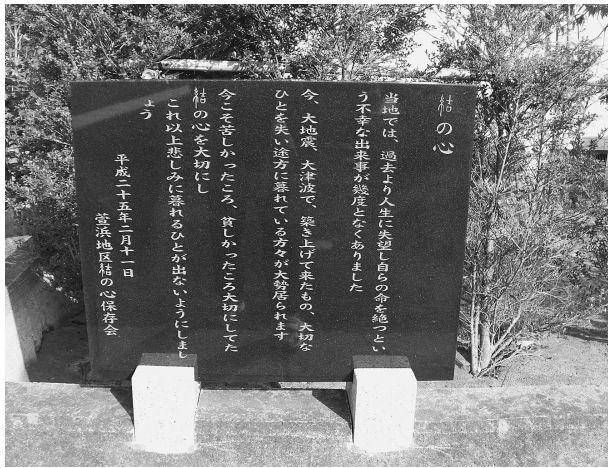 結の心
当地では、過去より人生に失望し自らの命を絶つとい
う不幸な出来事が幾度となくありました
今、大地震、大津波で、築き上げて来たもの、大切な
ひとを失い途方に暮れている方々が大勢居られます
今こそ苦しかったころ、貧しかったころ大切にしてた
結の心を大切にし
これ以上悲しみに暮れるひとが出ないようにしまし
ょう
平成二十五年二月十一日
萱浜地区結の心保存会